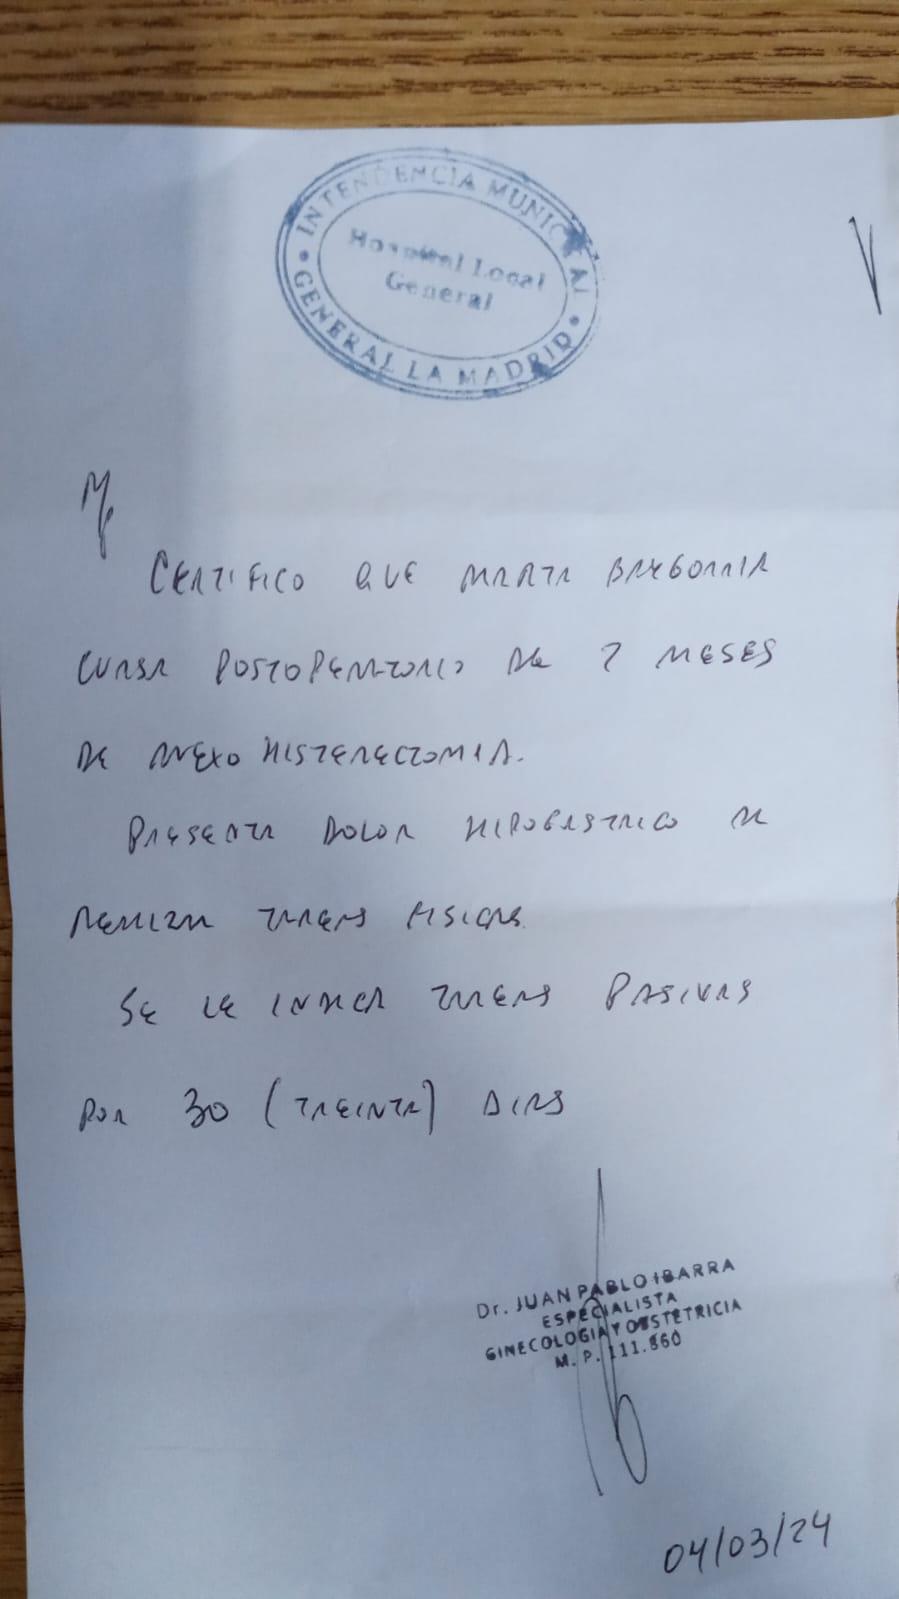 INTENDENCIA MUNICIPAL
Hospital Local
General
GENERAL LA MADRID
CERTIFICO QUE MARTA
CURSA POSTOPERATORIO DE 2 MESES
DE ANEXO HISTERECTOMIA.
PRESENTA DOLOR HIPOGASTRICO AL
REALIZAR TAREAS FISICAS.
SE LE INDICA TAREAS PASIVAS
POR 30 (TREINTA) DIAS
Dr. JUAN PABLO IBARRA
ESPECIALISTA
GINECOLOGIA Y OBSTETRICIA
M. P. 111.860
04/03/24